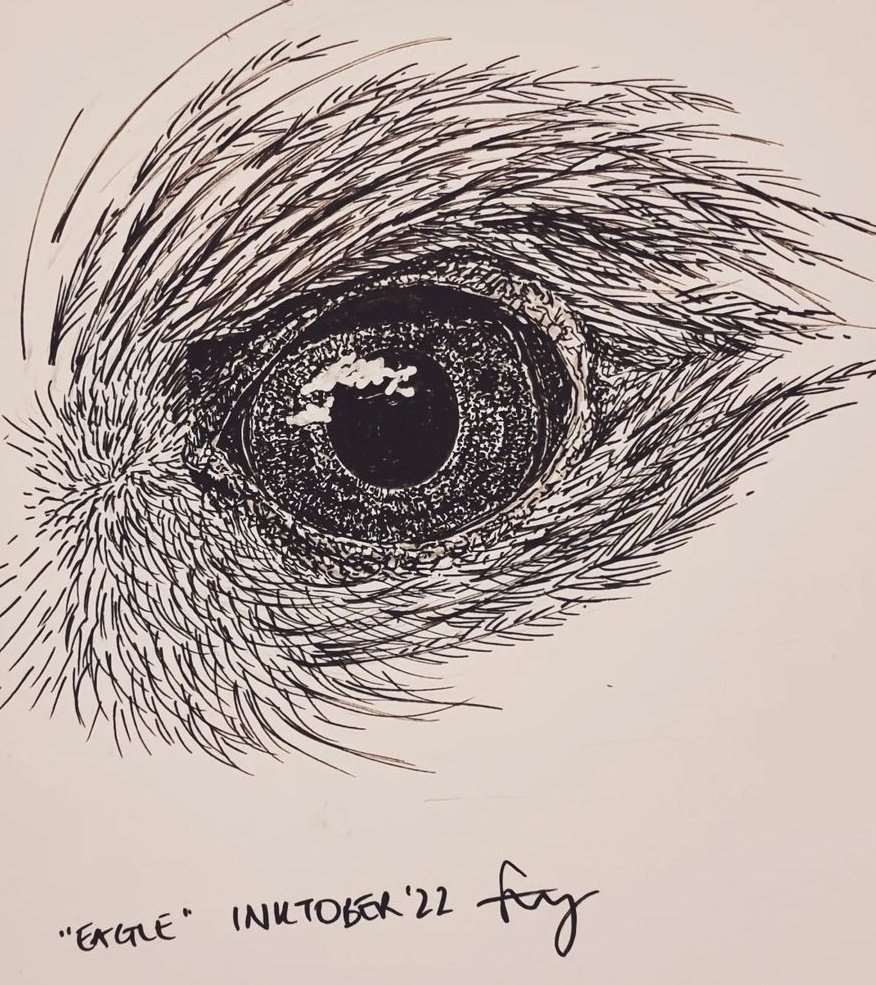 "EAGLE" INKTOBER '22